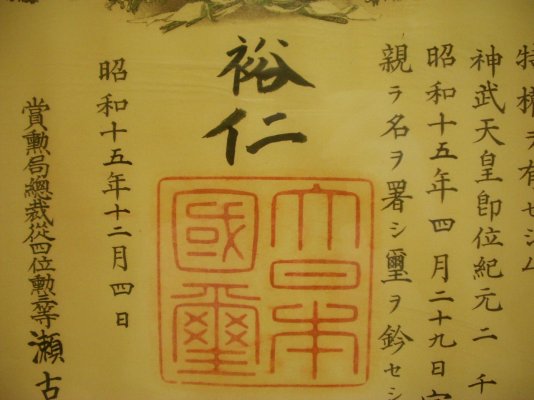 特權ヲ有セシム
神武天皇卽位紀元二千
昭和十五年四月二十九日
親ラ名ヲ署シ璽ヲ鈐セシ
裕仁
大日本
國璽
昭和十五年十二月四日
賞勳局總裁從四位勳二等瀨古